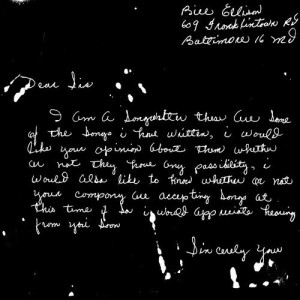 Bill Ellison
609 Franklintown Rd
Baltimore 16 Md
Dear Sir
I Am A Songwriter these are some
of the songs i have written, i would
like your opinion about them whether
or not they have any possibility, i
would also like to know whether or not
your company are accepting songs at
this time if so i would appreciate hearing
from you soon
Sincerely Your